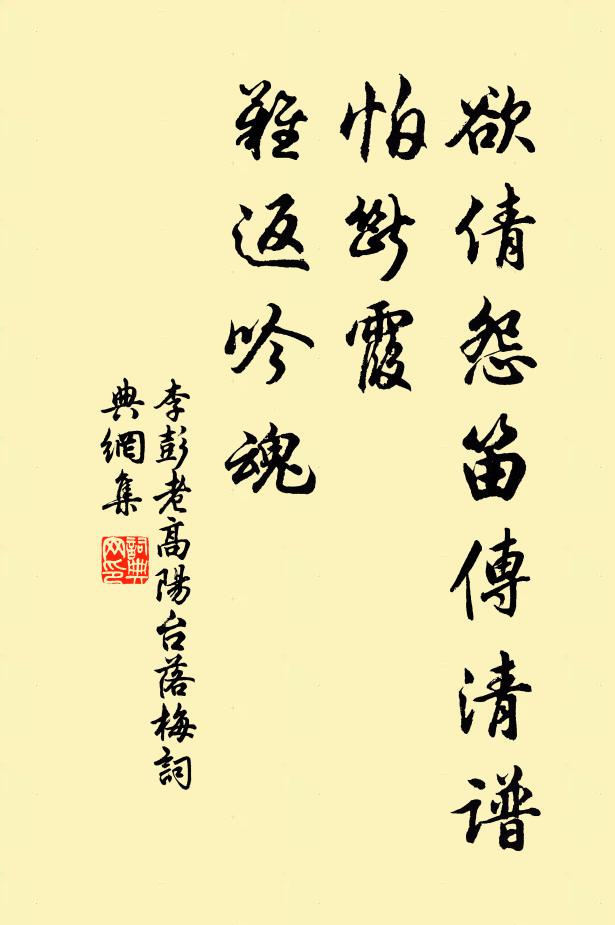 欲倩怨笛傳清譜
怕斷霞
難返吟魂
李彭老高陽台落梅詞
典網集
詞典網印